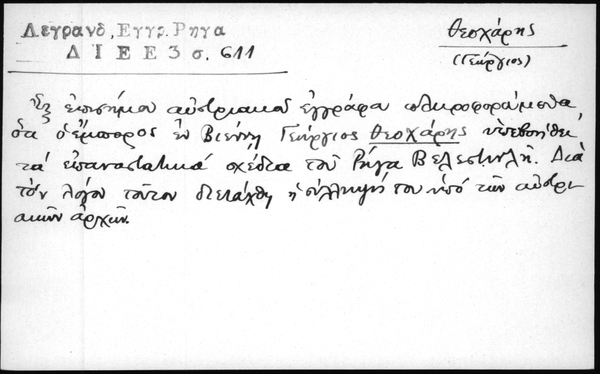 Λεγρανδ, Εγγρ. Ρηγα
Δ Ι Ε Ε 3 σ. 611
Θεοχάρης
(Γεώργιος)
Ἐξ ἐπισήμου αὐστριακοῦ ἐγγράφου πληροφορούμεθα,
ὅτι ὁ ἔμπορος ἐν Βιέννῃ Γεώργιος Θεοχάρης ὑπεβοήθει
τά ἐπαναστατικά σχέδια τοῦ Ρήγα Βελεστινλῆ. Διά
τόν λόγον τοῦτον διετάχθη ἡ σύλληψή του ὑπό τῶν αὐστρι
ακῶν ἀρχῶν.